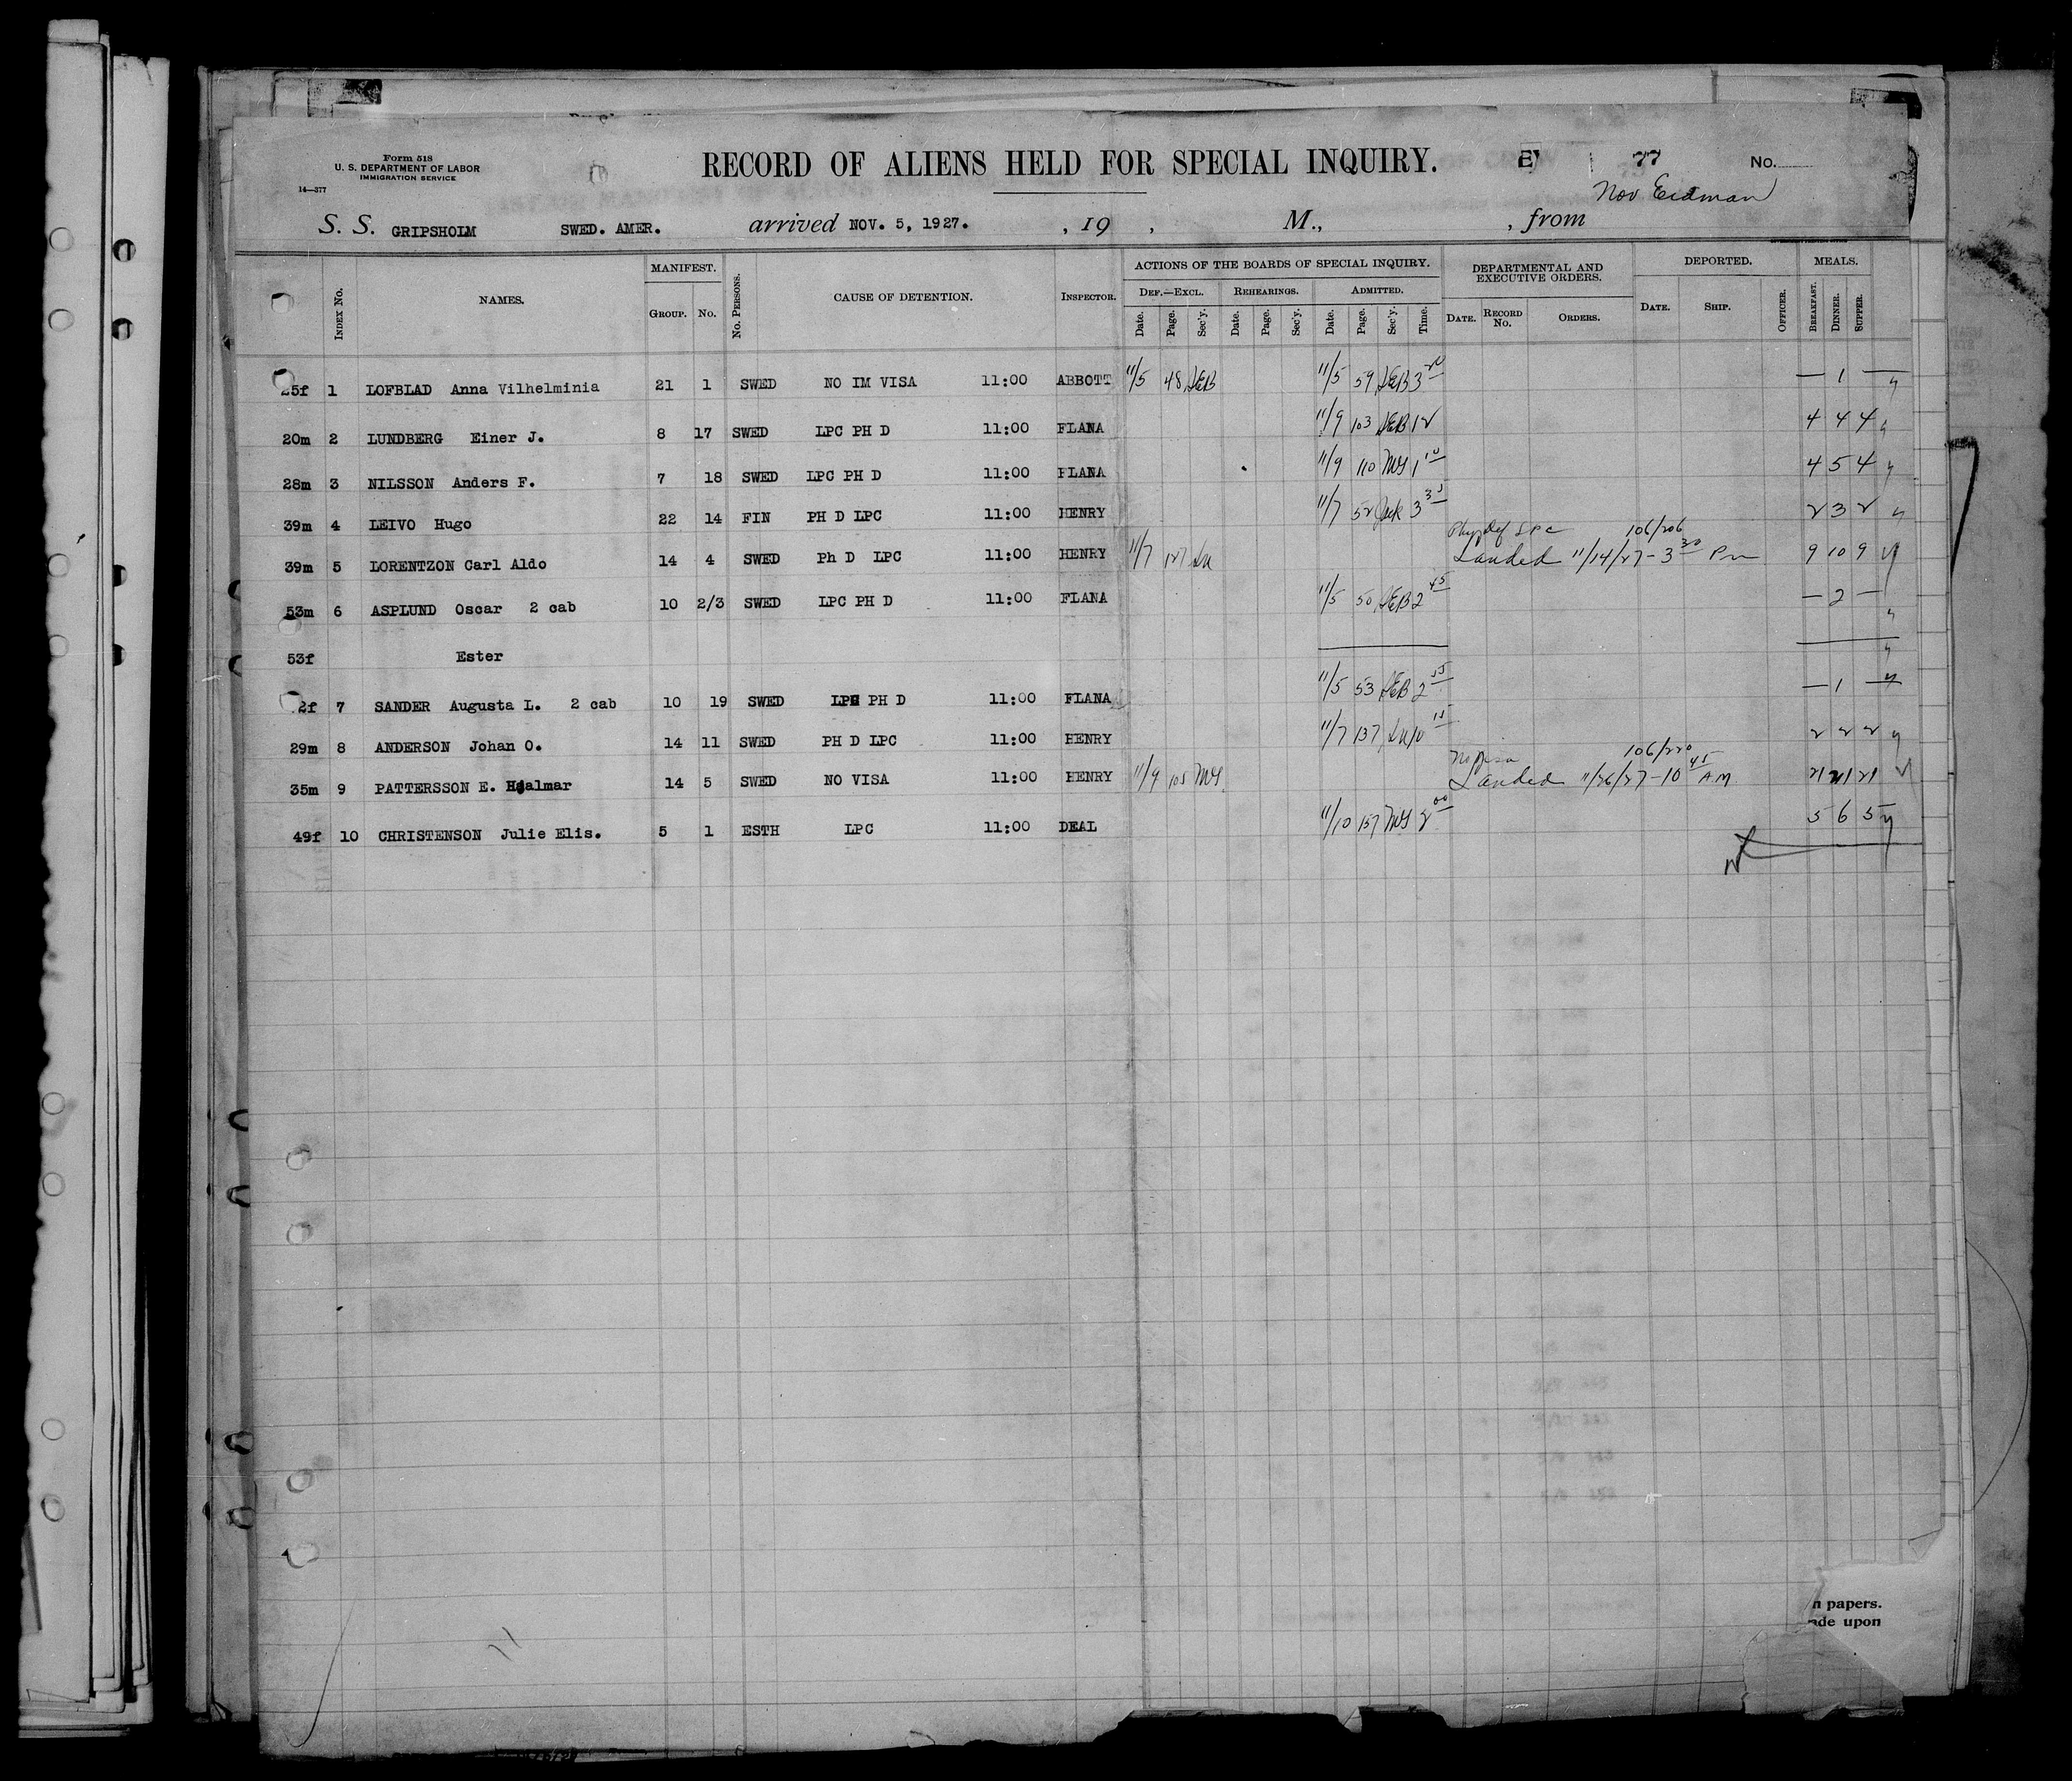 Form 518
U. S. DEPARTMENT OF LABOR
IMMIGRATION SERVICE
14—377
RECORD OF ALIENS HELD FOR SPECIAL INQUIRY.
77
No.
S. S. GRIPSHOLM SWED. AMER. arrived NOV. 5, 1927. , 19 , M., , from
INDEX NO. NAMES. MANIFEST. GROUP. NO. NO. PERSONS. CAUSE OF DETENTION. INSPECTOR. ACTIONS OF THE BOARDS OF SPECIAL INQUIRY. DEF.—EXCL. Date. Page. Sec'y. REHEARINGS. Date. Page. Sec'y. ADMITTED. Date. Page. Sec'y. Time. DEPARTMENTAL AND EXECUTIVE ORDERS. DATE. RECORD NO. ORDERS. DEPORTED. DATE. SHIP. OFFICER. MEALS. BREAKFAST. DINNER. SUPPER.
25f 1 LOFBLAD Anna Vilhelminia 21 1 SWED NO IM VISA 11:00 ABBOTT 11/5 48 JEB 11/5 59 JEB 3 — 1 —
20m 2 LUNDBERG Einer J. 8 17 SWED LPC PH D 11:00 FLANA 11/9 103 JEB 12 4 4 4
28m 3 NILSSON Anders F. 7 18 SWED LPC PH D 11:00 FLANA 11/9 110 MY 1 10 4 5 4
39m 4 LEIVO Hugo 22 14 FIN PH D LPC 11:00 HENRY 11/7 52 3 35 2 3 2
Phy def LPC 106/206
39m 5 LORENTZON Carl Aldo 14 4 SWED Ph D LPC 11:00 HENRY 11/7 127 Landed 11/14/27 - 3 30 Pm 9 10 9
53m 6 ASPLUND Oscar 2 cab 10 2/3 SWED LPC PH D 11:00 FLANA 11/5 50 JEB 2 45 — 2 —
53f Ester
2f 7 SANDER Augusta L. 2 cab 10 19 SWED LPC PH D 11:00 FLANA 11/5 53 JEB 2 55 — 1 —
29m 8 ANDERSON Johan O. 14 11 SWED PH D LPC 11:00 HENRY 11/7 137 10 15 2 2 2
No visa 106/220
35m 9 PATTERSSON E. Hjalmar 14 5 SWED NO VISA 11:00 HENRY 11/9 105 MY Landed 11/26/27 - 10 45 AM 21 21 21
49f 10 CHRISTENSON Julie Elis. 5 1 ESTH LPC 11:00 DEAL 11/10 157 MY 2 00 5 6 5
n papers.
ade upon